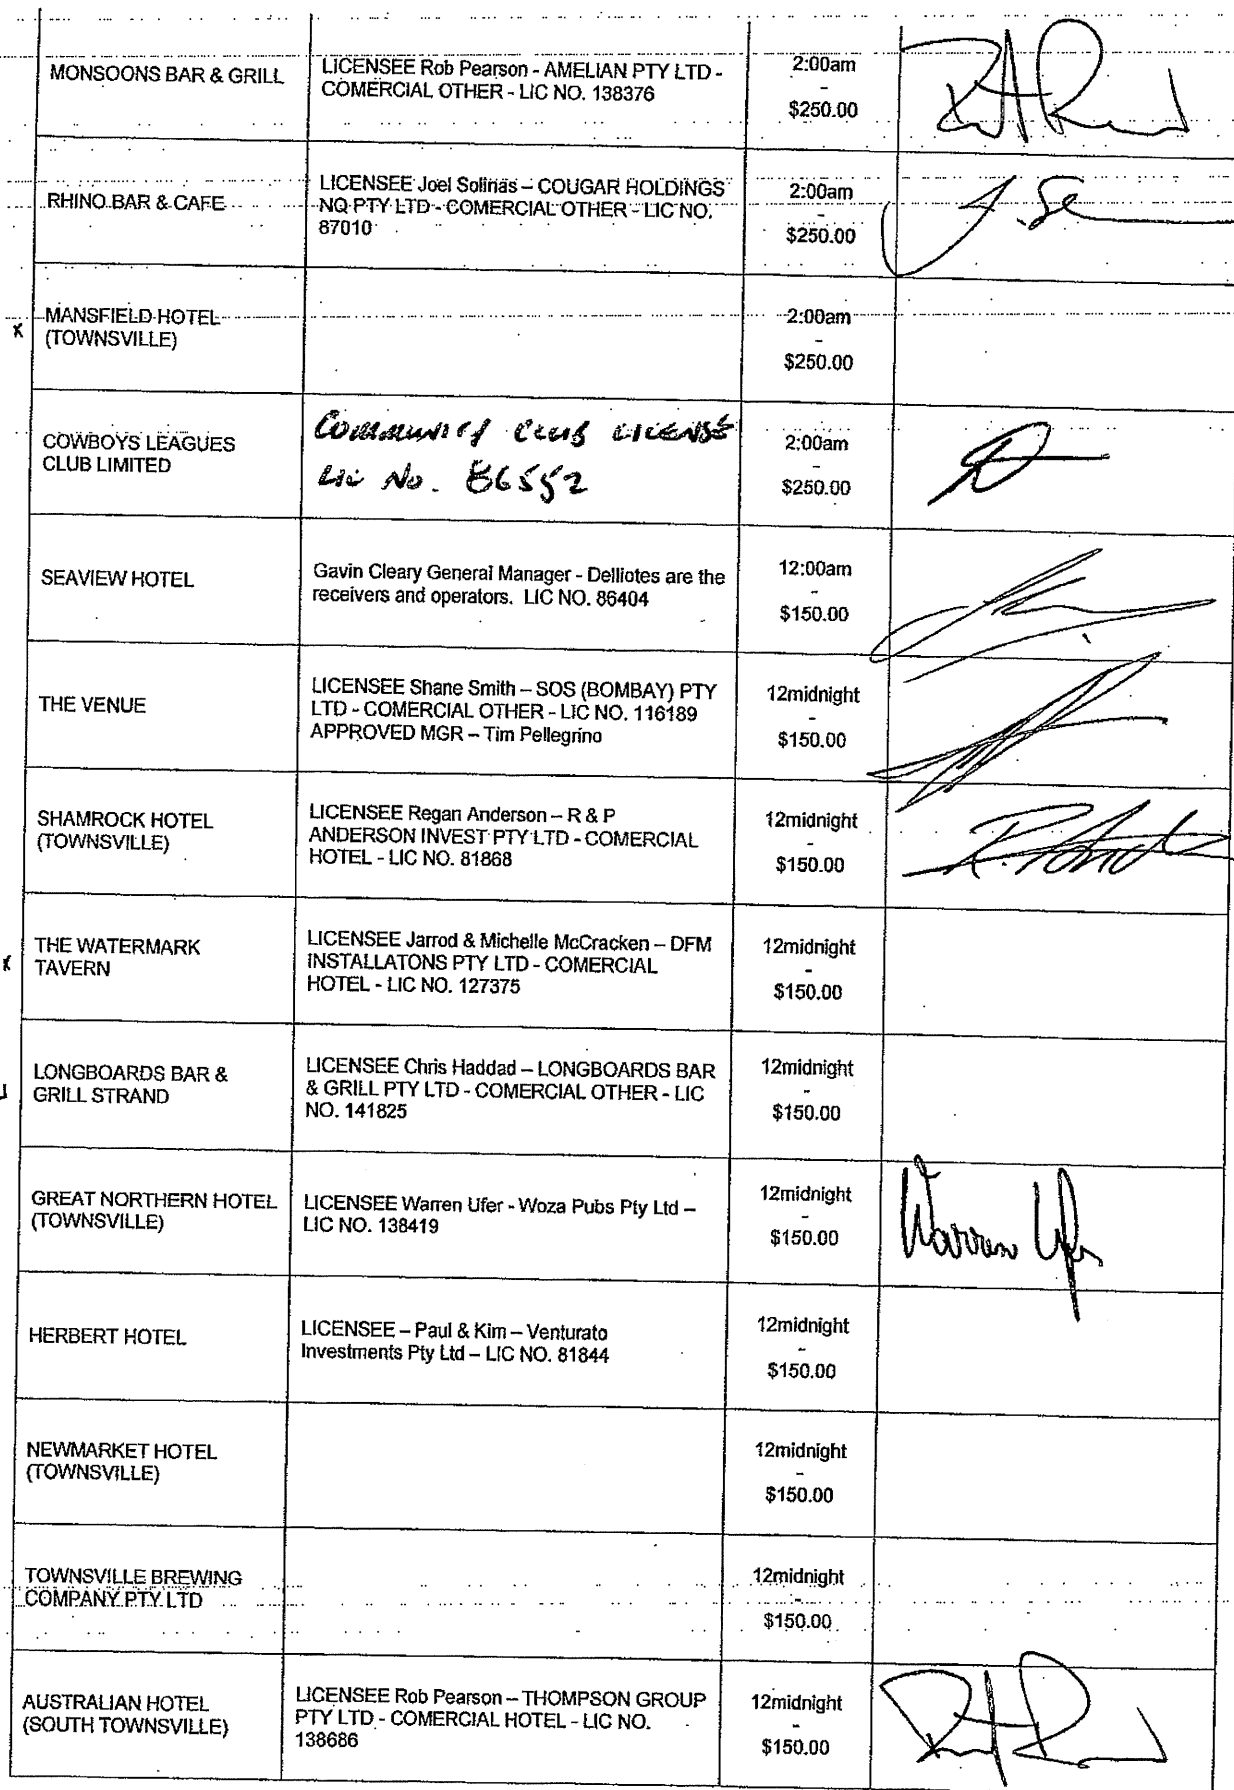 MONSOONS BAR & GRILL
LICENSEE Rob Pearson - AMELIAN PTY LTD -
COMERCIAL OTHER - LIC NO. 138376
2:00am
-
$250.00
RHINO BAR & CAFE
LICENSEE Joel Solinas – COUGAR HOLDINGS
NQ PTY LTD - COMERCIAL OTHER – LIC NO.
87010
2:00am
-
$250.00
x
MANSFIELD HOTEL
(TOWNSVILLE)
2:00am
-
$250.00
COWBOYS LEAGUES
CLUB LIMITED
COMMUNITY CLUB LICENSE
Lic No. 86552
2:00am
-
$250.00
SEAVIEW HOTEL
Gavin Cleary General Manager - Delliotes are the
receivers and operators. LIC NO. 86404
12:00am
-
$150.00
THE VENUE
LICENSEE Shane Smith – SOS (BOMBAY) PTY
LTD - COMERCIAL OTHER - LIC NO. 116189
APPROVED MGR – Tim Pellegrino
12midnight
-
$150.00
SHAMROCK HOTEL
(TOWNSVILLE)
LICENSEE Regan Anderson – R & P
ANDERSON INVEST PTY LTD - COMERCIAL
HOTEL - LIC NO. 81868
12midnight
-
$150.00
x
THE WATERMARK
TAVERN
LICENSEE Jarrod & Michelle McCracken – DFM
INSTALLATONS PTY LTD - COMERCIAL
HOTEL - LIC NO. 127375
12midnight
-
$150.00
LONGBOARDS BAR &
GRILL STRAND
LICENSEE Chris Haddad – LONGBOARDS BAR
& GRILL PTY LTD - COMERCIAL OTHER - LIC
NO. 141825
12midnight
-
$150.00
GREAT NORTHERN HOTEL
(TOWNSVILLE)
LICENSEE Warren Ufer - Woza Pubs Pty Ltd –
LIC NO. 138419
12midnight
-
$150.00
Warren Ufer
HERBERT HOTEL
LICENSEE – Paul & Kim – Venturato
Investments Pty Ltd – LIC NO. 81844
12midnight
-
$150.00
NEWMARKET HOTEL
(TOWNSVILLE)
12midnight
-
$150.00
TOWNSVILLE BREWING
COMPANY PTY LTD
12midnight
-
$150.00
AUSTRALIAN HOTEL
(SOUTH TOWNSVILLE)
LICENSEE Rob Pearson – THOMPSON GROUP
PTY LTD - COMERCIAL HOTEL - LIC NO.
138686
12midnight
-
$150.00